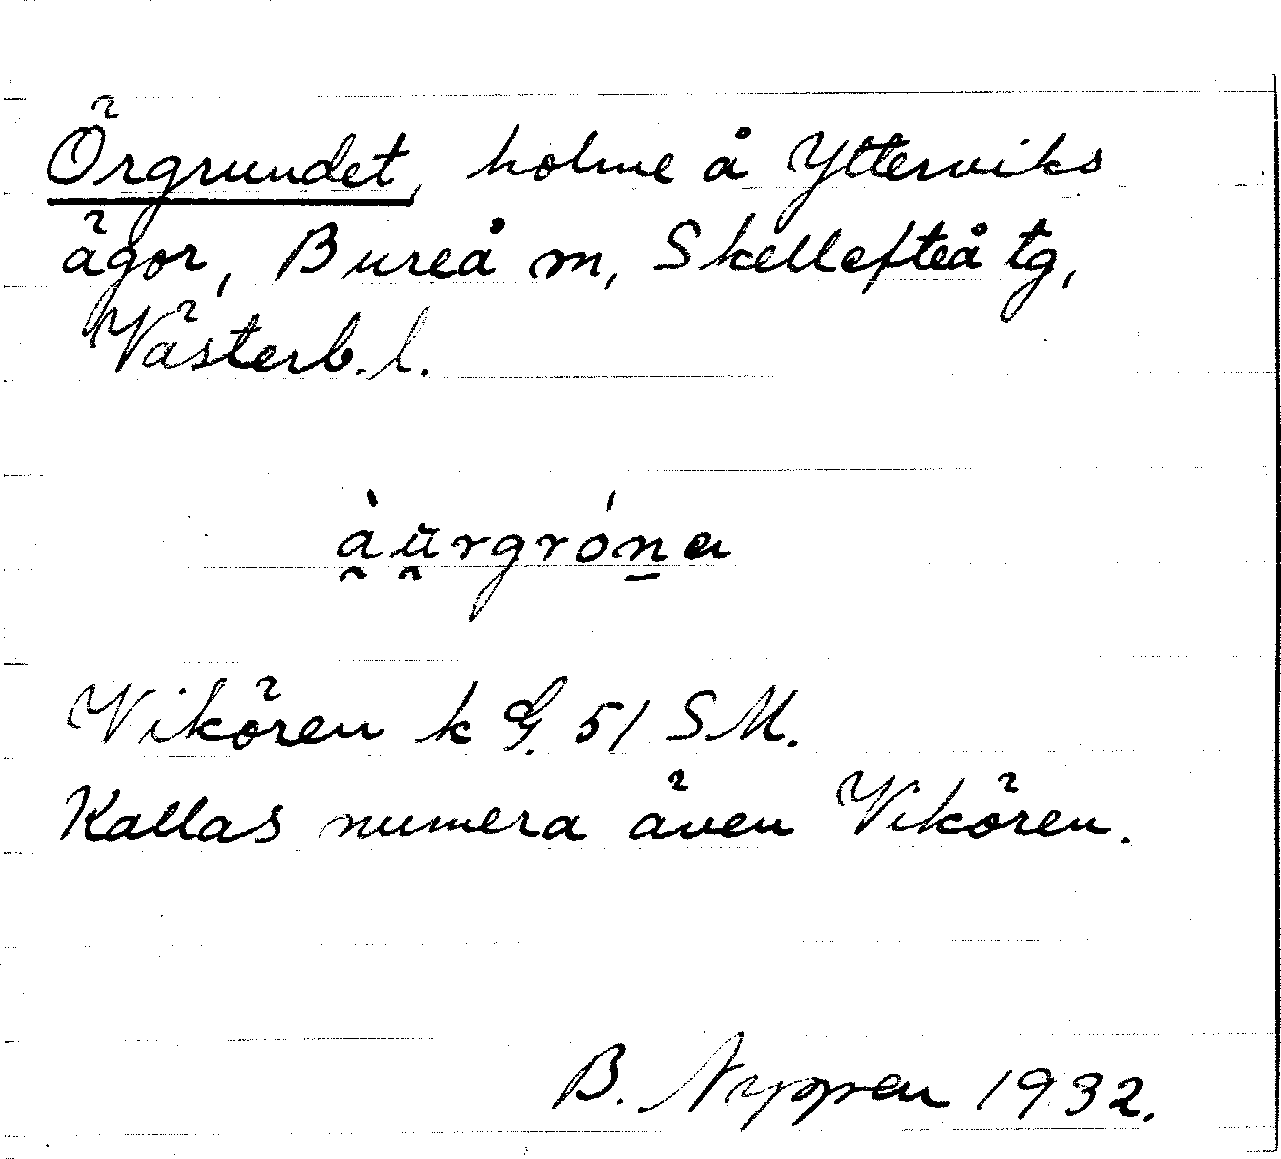 Örgrundet, holme å Ytterviks
ägor, Bureå m, Skellefteå tg,
Västerb. l.
àu̯rgrón̲a
Vikören k G. 51 SM.
Kallas numera även Vikören.
B. Nyppen 1932.